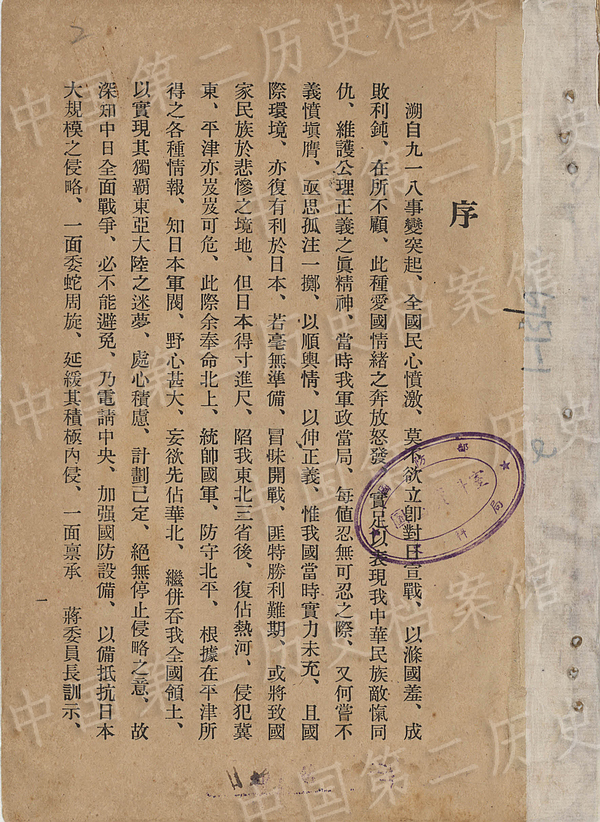 序
溯自九一八事變突起、全國民心憤激、莫不欲立卽對日宣戰、以滌國羞、成
敗利鈍、在所不顧、此種愛國情緒之奔放怒發、實足以表現我中華民族敵愾同
仇、維護公理正義之眞精神、當時我軍政當局、每値忍無可忍之際、又何嘗不
義憤塡膺、亟思孤注一擲、以順輿情、以伸正義、惟我國當時實力未充、且國
際環境、亦復有利於日本、若毫無準備、冒昧開戰、匪特勝利難期、或將致國
家民族於悲慘之境地、但日本得寸進尺、陷我東北三省後、復佔熱河、侵犯冀
東、平津亦岌岌可危、此際余奉命北上、統帥國軍、防守北平、根據在平津所
得之各種情報、知日本軍閥、野心甚大、妄欲先佔華北、繼併吞我全國領土、
以實現其獨霸東亞大陸之迷夢、處心積慮、計劃已定、絕無停止侵略之意、故
深知中日全面戰爭、必不能避免、乃電請中央、加强國防設備、以備抵抗日本
大規模之侵略、一面委蛇周旋、延緩其積極內侵、一面禀承 蔣委員長訓示、
一
2
中国第二历史档案馆
中国第二历史档案馆
中国第二历史档案馆
中国第二历史档案馆